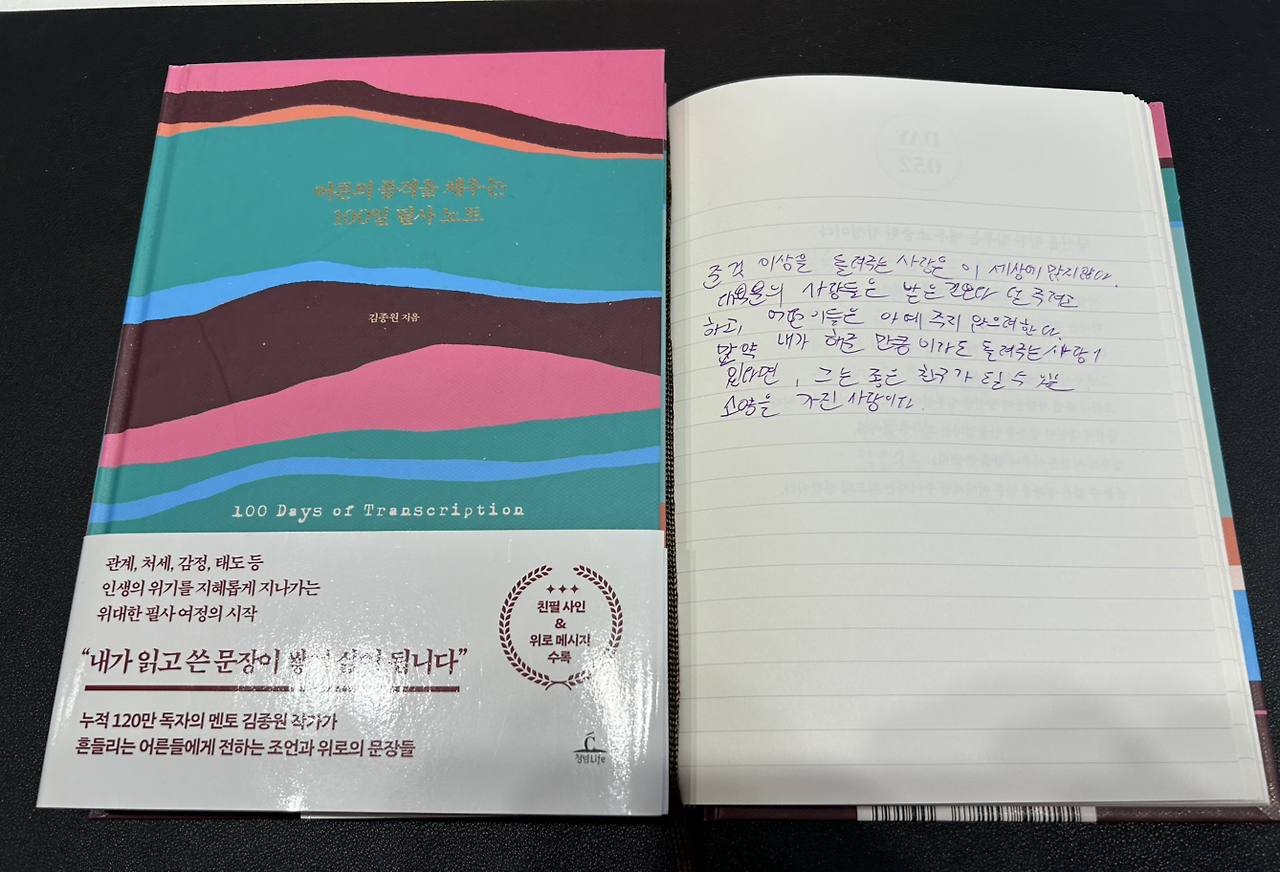 어른의 품격을 채우는
100일 필사 노트
김종원 지음
100 Days of Transcription
관계, 처세, 감정, 태도 등
인생의 위기를 지혜롭게 지나가는
위대한 필사 여정의 시작
“내가 읽고 쓴 문장이 됩니다”
누적 120만 독자의 멘토 김종원 작가가
흔들리는 어른들에게 전하는 조언과 위로의 문장들
친필 사인
&
위로 메시지
수록
청림Life
DAY
052
준 것 이상을 돌려주는 사람은 이 세상에 많지 않다.
대부분의 사람들은 받은 것보다 덜 주려고
하고, 어떤 이들은 아예 주지 않으려 한다.
만약 내가 해준 만큼이라도 돌려주는 사람이
있다면, 그는 좋은 친구가 될 수 있는
소양을 가진 사람이다.